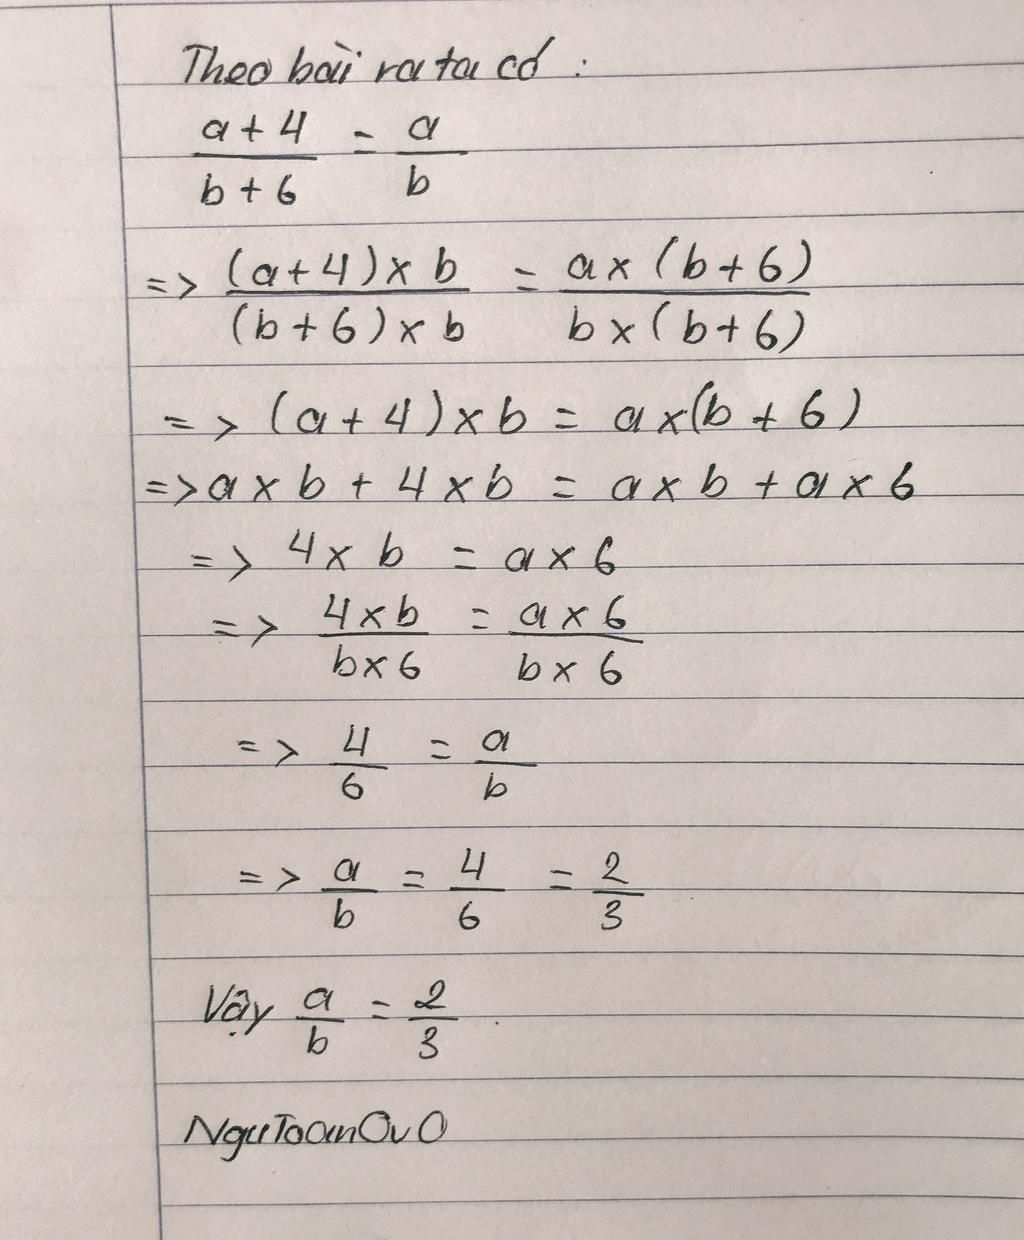 Theo bài ra ta có :
a + 4 / b + 6 = a / b
=> (a + 4) x b / (b + 6) x b = a x (b + 6) / b x (b + 6)
=> (a + 4) x b = a x (b + 6)
=> a x b + 4 x b = a x b + a x 6
=> 4 x b = a x 6
=> 4 x b / b x 6 = a x 6 / b x 6
=> 4 / 6 = a / b
=> a / b = 4 / 6 = 2 / 3
Vậy a / b = 2 / 3 .
NguToanOvO